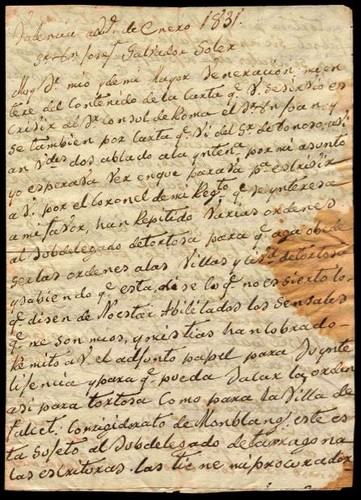 Valencia a de Enero 1831.
Sr Dn Josef Salvador Soler
Muy Sr mio y de mi mayor Veneracion, mien
tere del contenido de la carta qe V. Se sirvio es
crivir del Sr Consul de Roma el Sr Dn Juan y
se tambien por carta qe vi del Sr de tonoso, asi
an Vdes dos ablado a la ynten.a por mi asunto
yo esperava Ver en que parava pa escrivir
a V. por el Coronel de mi Regto qe se ynteresa
a mi favor, han Repitido Varias ordenes
al Subdelegado de tortosa para qe aga obede
ser las ordenes a las Villas y de tortosa
y sabiendo qe esta, dise lo qe no es sierto lo
qe disen de No estar Abilitados los Sensales
qe ne son mios, y mis tias han Cobrado
Remito a V. el adjunto papel para Su ynte
lisencia y para qe pueda Sacar la orden
asi para tortosa Como para la Villa de
falcet: Corregidorato de Monblanc este es
ta Sujeto al Subdelegado de tarragona
las escrituras las tiene mi procurador